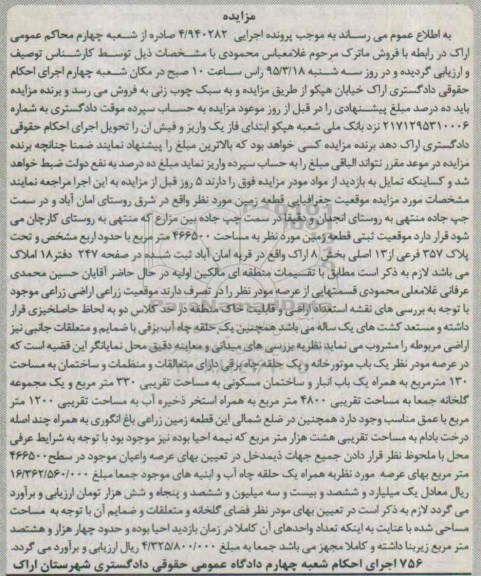 مزایده
به اطلاع عموم می رساند به موجب پرونده اجرایی ۴/۹۴۰۲۸۳ صادره از شعبه چهارم محاکم عمومی
اراک در رابطه با فروش ماترک مرحوم غلامعباس محمودی با مشخصات ذیل توسط کارشناس توصیف
و ارزیابی گردیده و در روز سه شنبه ۹۵/۳/۱۸ راس ساعت ۱۰ صبح در مکان شعبه چهارم اجرای احکام
حقوقی دادگستری اراک خیابان هپکو از طریق مزایده و به سبک چوب زنی به فروش می رسد و برنده مزایده
باید ده درصد مبلغ پیشنهادی را در قبل از روز موعود مزایده به حساب سپرده موقت دادگستری به شماره
۲۱۷۱۲۹۵۳۱۰۰۰۶ نزد بانک ملی شعبه هپکو ابتدای فاز یک واریز و فیش ان را تحویل اجرای احکام حقوقی
دادگستری اراک دهد برنده مزایده کسی خواهد بود که بالاترین مبلغ را پیشنهاد نمایند ضمنا چنانچه برنده
مزایده در موعد مقرر نتواند الباقی مبلغ را به حساب سپرده واریز نماید مبلغ ده درصد به نفع دولت ضبط خواهد
شد و کسانیکه تمایل به بازدید از مواد مودر مزایده فوق را دارند ۵ روز قبل از مزایده به این اجرا مراجعه نمایند
مشخصات مورد مزایده موقعیت جغرافیایی قطعه زمین مورد نظر واقع در شرق روستای امان آباد و در سمت
چپ جاده منتهی به روستای انجدان و دقیقا در سمت چپ جاده بین مزارع که منتهی به روستای کارچان می
شود قرار دارد موقعیت ثبتی قطعه زمین مورد نظر به مساحت ۴۶۶۵۰۰ متر مربع با حدود اربع مشخص و تحت
پلاک ۳۵۷ فرعی از ۱۳ اصلی بخش ۸ اراک واقع در قریه امان آباد ثبت شده در صفحه ۲۴۷ دفتر ۱۸ املاک
می باشد لازم به ذکر است مطابق با تقسیمات منطقه ای مالکین اولیه در حال حاضر آقایان حسین محمدی
عرفانی غلامعلی محمودی قسمتهایی از عرصه مودر نظر را در تصرف دارند موقعیت زراعی اراضی زراعی موجود
با توجه به بررسی های نقشه استعداد اراضی و قابلیت خاک منطقه در حد کلاس دو به لحاظ حاصلخیزی قرار
داشته و مستعد کشت های یک ساله می باشد همچنین یک حلقه چاه آب برقی با ضمایم و متعلقات جانبی نیز
اراضی مربوطه را مشروب می نماید نظریه بررسی های میدانی و معاینه دقیق محل نمایانگر این قضیه است که
در عرصه مودر نظر یک باب موتورخانه و یک حلقه چاه برقی دارای متعالقات و منظمات و ساختمان به مساحت
۱۳۰ مترمربع به همراه یک باب انبار و ساختمان مسکونی به مساحت تقریبی ۳۳۰ متر مربع و یک مجموعه
گلخانه جمعا به مساحت تقریبی ۴۸۰۰ متر مربع به همراه استخر ذخیره آب به مساحت تقریبی ۱۲۰۰ متر
مربع با عمق مناسب وجود دارد همچنین در ضلع شمالی این قطعه زمین زراعی باغ انگوری به همراه چند اصله
درخت بادام به مساحت تقریبی هشت هزار متر مربع که نیمه احیا بوده نیز موجود بود با توجه به شرایط عرفی
محل با ملحوظ نظر قرار دادن جمیع جهات ذیمدخل در تعیین بهای عرصه واعیان موجود در سطح ۴۶۶۵۰۰
متر مربع بهای عرصه مورد نظر به همراه یک حلقه چاه آب و ابنیه های موجود جمعا مبلغ ۱۶/۳۶۲/۵۶۰/۰۰۰
ریال معادل یک میلیارد و ششصد و بیست و سه میلیون و ششصد و پنجاه و شش هزار تومان ارزیابی و برآورد
می گردد لازم به ذکر است در تعیین بهای مودر نظر فضای گلخانه و متعلقات و ضمایم آن با توجه به مساحت
مساحی شده با عنایت به اینکه تعداد واحدهای آن کاملا در زمان بازدید احیا بوده و حدود چهار هزار و هشتصد
متر مربع زیربنا داشته و کاملا مجهز می باشد جمعا به مبلغ ۴/۳۲۵/۸۰۰/۰۰۰ ریال ارزیابی و برآورد می گردد.
۷۵۶ اجرای احکام شعبه چهارم دادگاه عمومی حقوقی دادگستری شهرستان اراک